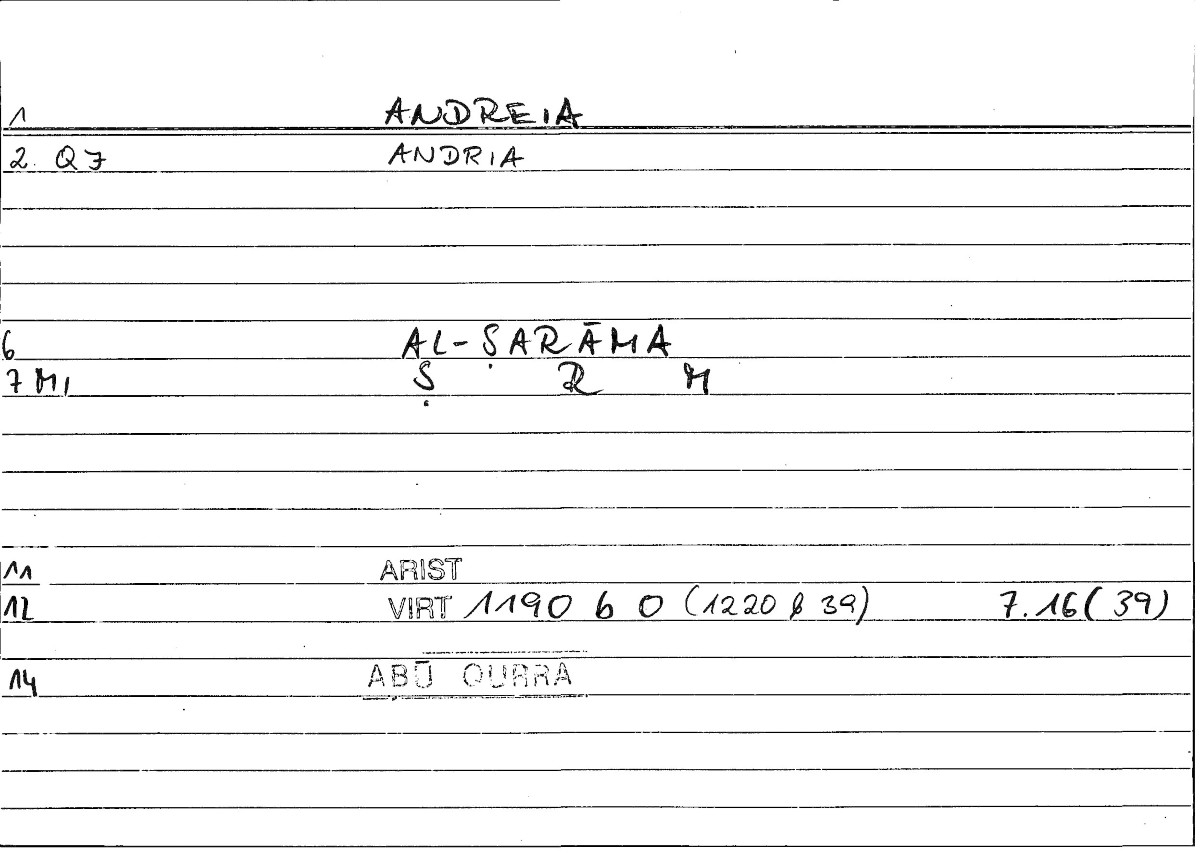 1 ANDREIA
2. Q7 ANDRIA
6 AL-ṢARĀMA
7 M1 Ṣ R M
11 ARIST
12 VIRT 1190 b 0 (1220 b 39) 7.16(39)
14 ABŪ QURRA